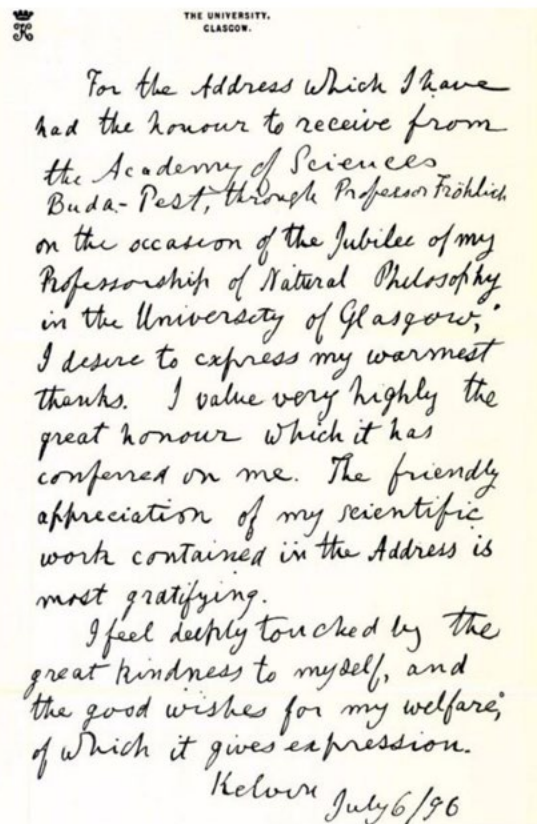 THE UNIVERSITY,
GLASGOW.
For the Address which I have
had the honour to receive from
the Academy of Sciences
Buda-Pest, through Professor Fröhlich
on the occasion of the Jubilee of my
Professorship of Natural Philosophy
in the University of Glasgow,
I desire to express my warmest
thanks. I value very highly the
great honour which it has
conferred on me. The friendly
appreciation of my scientific
work contained in the Address is
most gratifying.
I feel deeply touched by the
great kindness to myself, and
the good wishes for my welfare,
of which it gives expression.
Kelvin
July 6/96